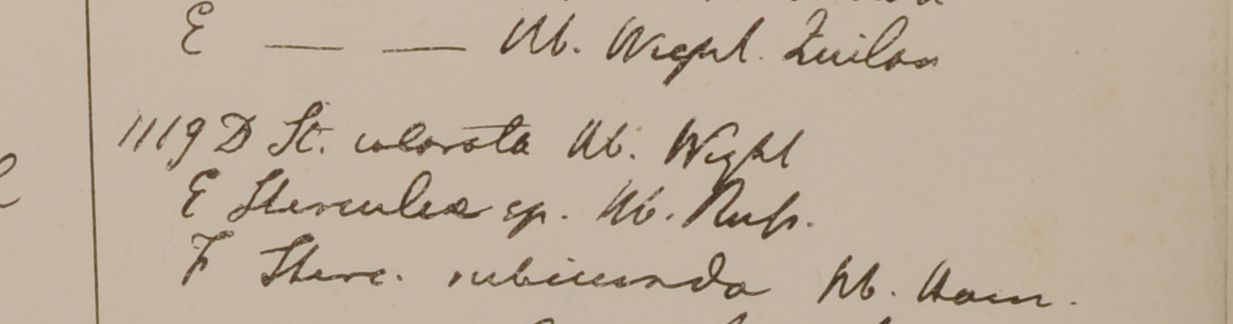 E — — Hb. Wight. Zeilan
1119 D St. colorata Hb. Wight
E Sterculia sp. Hb. Rufs.
F Sterc. rubicunda Hb. Ham.